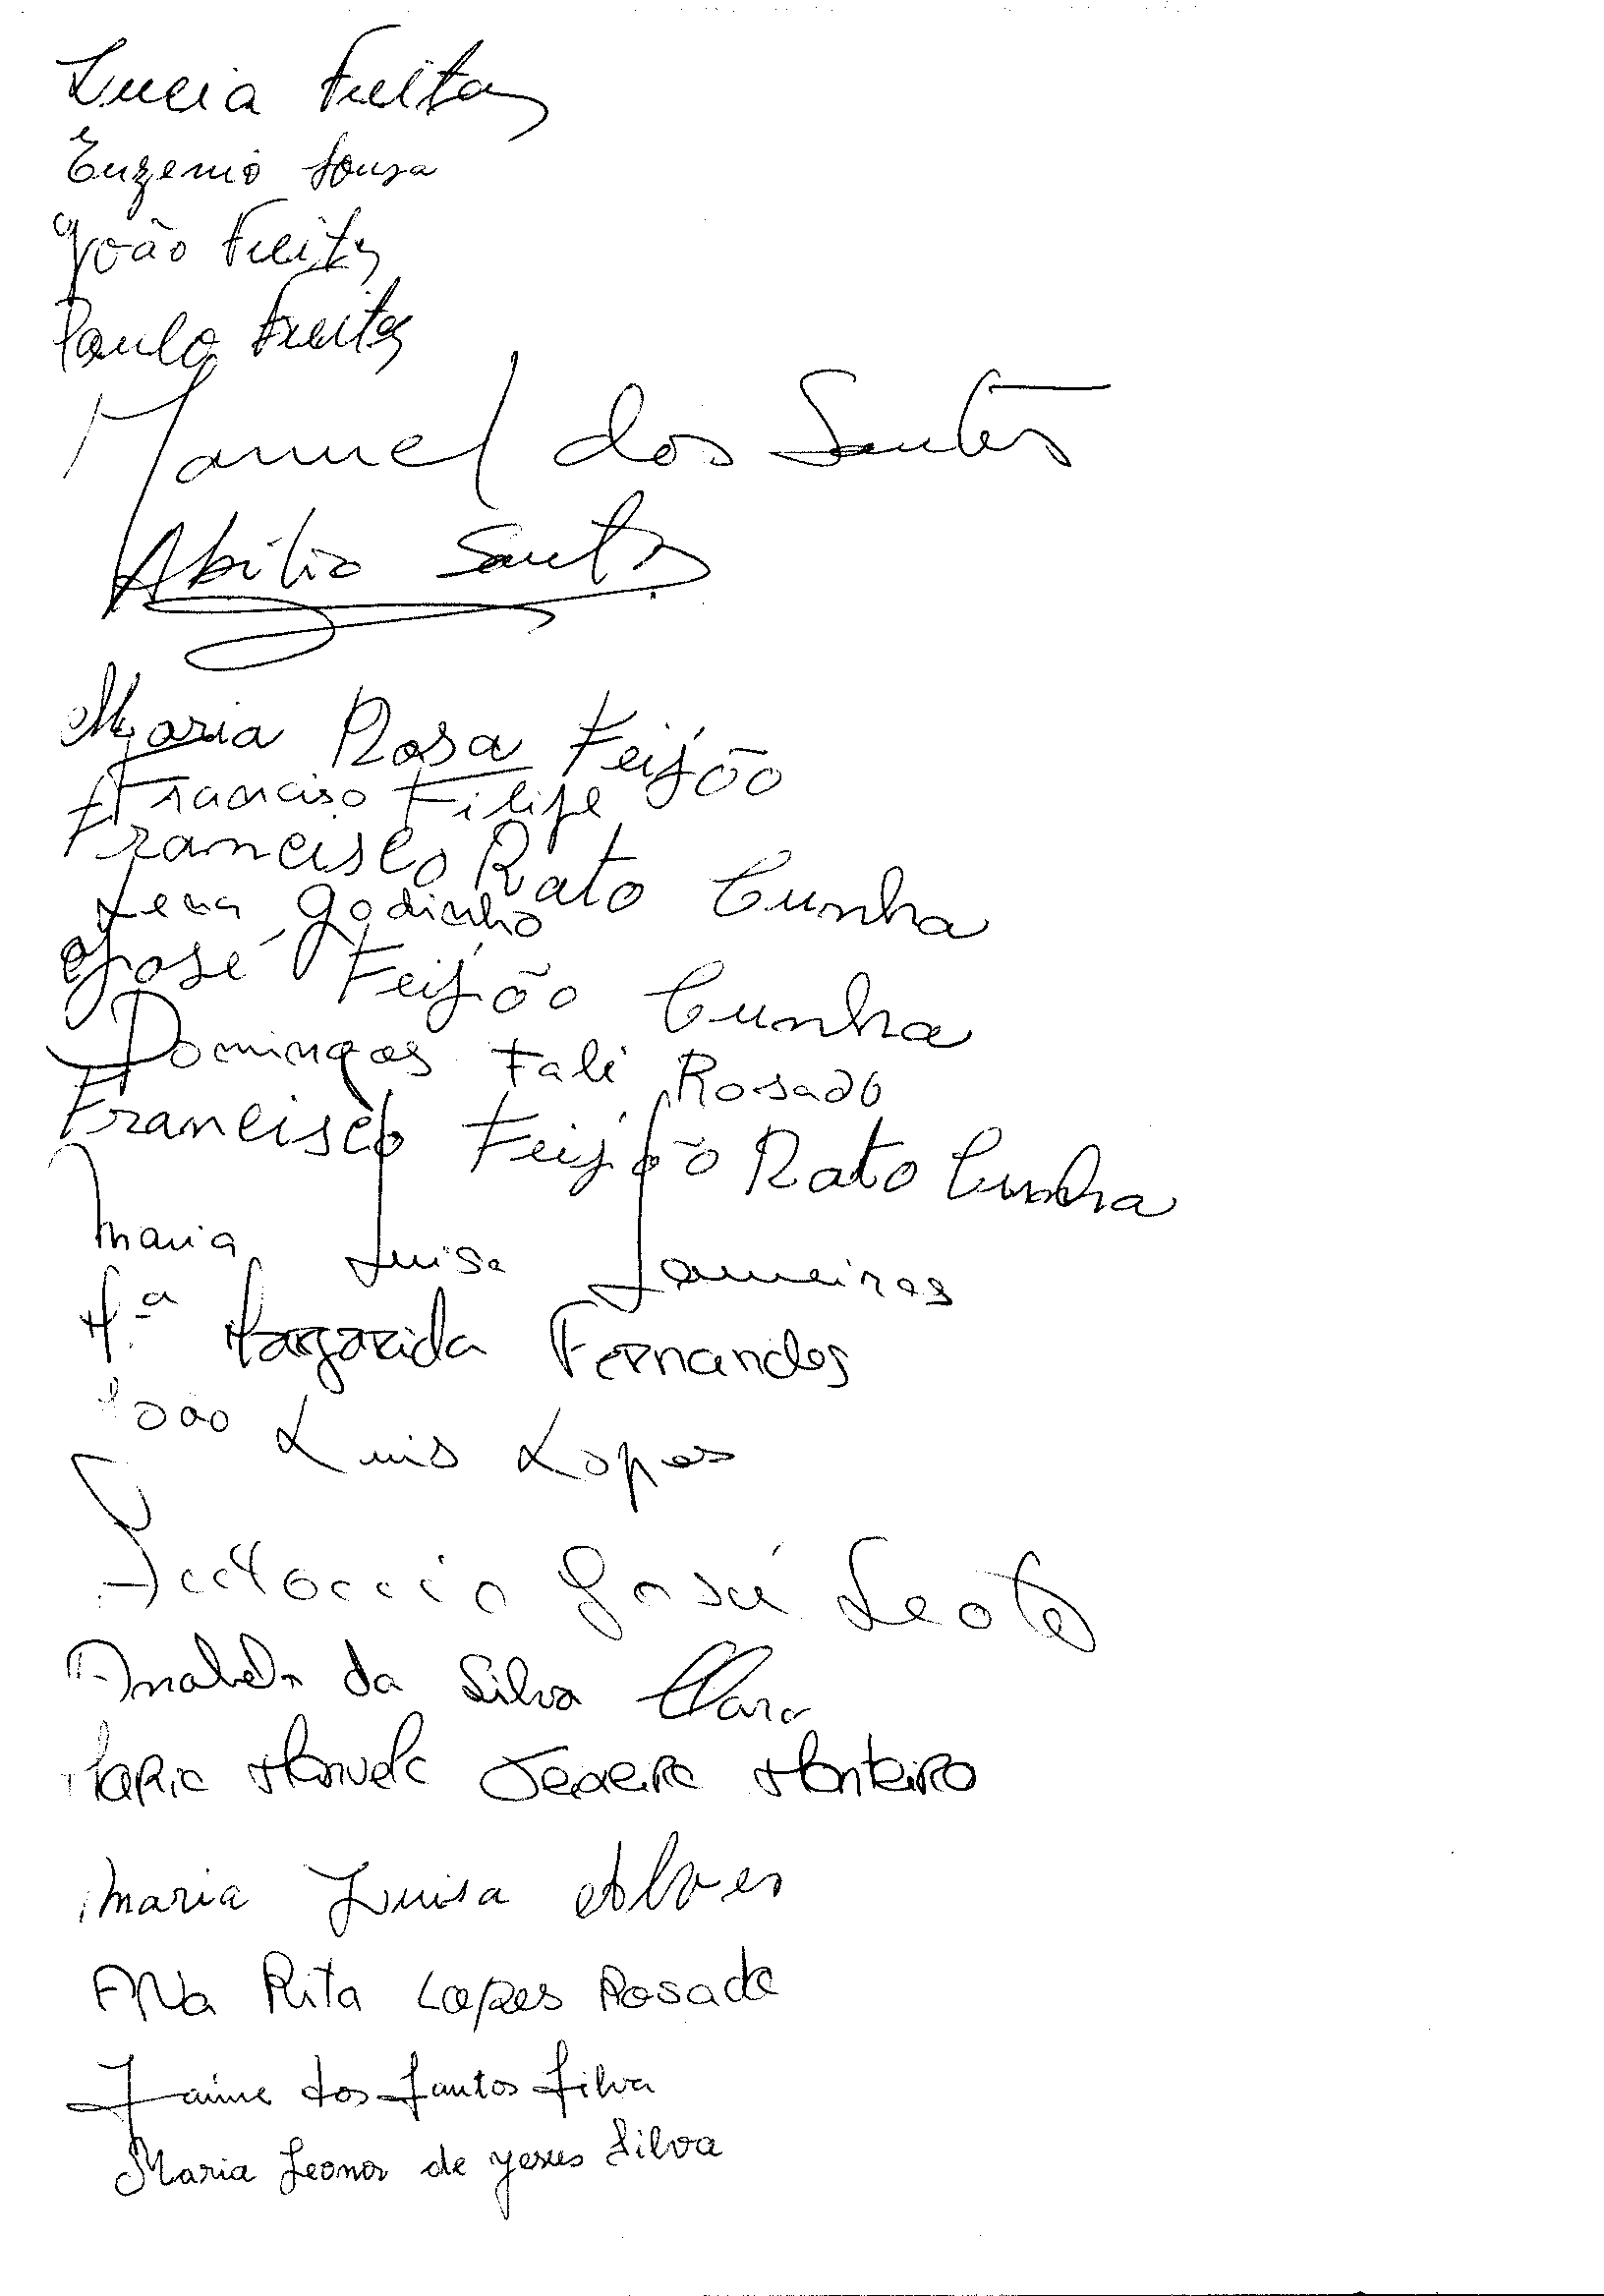 Lucia Freitas
Eugenio Sousa
João Freitas
Paulo Freitas
Manuel dos Santos
Abilio Santos
Maria Rosa Feijão
Francisco Filipe
Francisco Rato Cunha
Lena Godinho
José Feijão Cunha
Domingos Falé Rosado
Francisco Feijão Rato Cunha
Maria Luisa Lameiras
M.ª Margarida Fernandes
João Luis Lopes
Antonio José Leote
Anabela da Silva Clara
Maria Manuela Teixeira Monteiro
Maria Luisa Alves
Ana Rita Lopes Rosado
Jaime dos Santos Silva
Maria Leonor de Jesus Silva